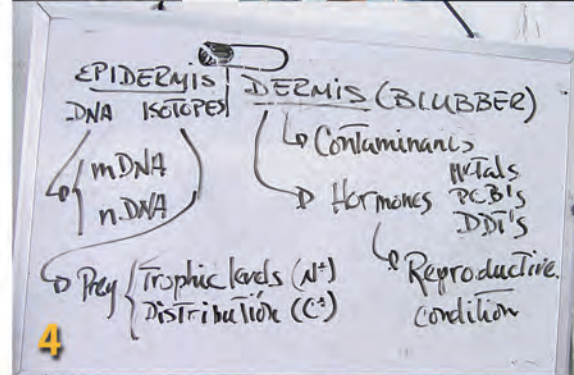 EPIDERMIS
DNA ISOTOPES
mDNA
n.DNA
Prey
Trophic levels (N±)
Distribution (C±)
DERMIS (BLUBBER)
Contaminants
Metals
PCB's
DDT's
Hormones
Reproductive
condition
4